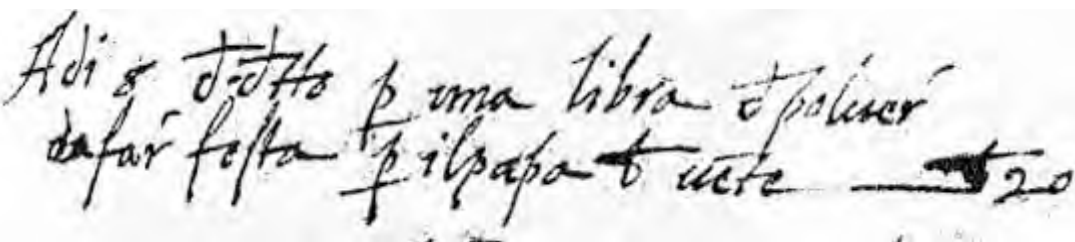 Adi 8 d.dtto p una libra d poluer
da far festa p il papa b uete — b 20